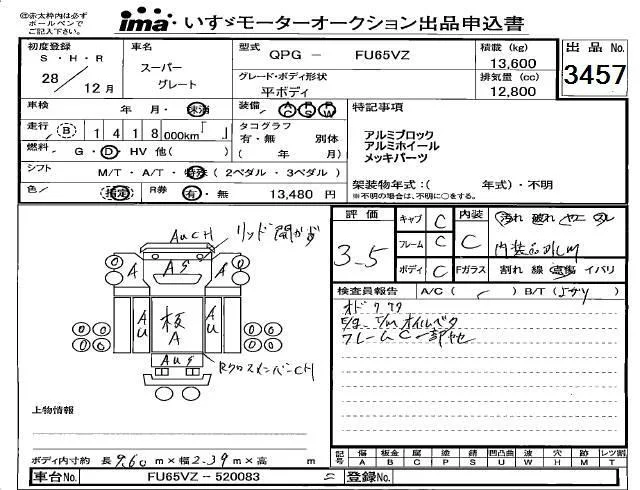 ㊟赤太枠内は必ず
ボールペンで
ご記入下さい。
ima・いすゞモーターオークション出品申込書
初度登録
S・H・R
28 12月
車名
スーパー
グレート
型式
QPG － FU65VZ
積載 (kg)
13,600
排気量 (cc)
12,800
出品 No.
3457
グレード・ボディ形状
平ボディ
車検 年 月・抹消
装備 AC PS PW
特記事項
アルミブロック
アルミホイール
メッキパーツ
走行 B 1418,000km
タコグラフ
有・無 別体
( 年 月)
燃料 G・D・HV 他( )
シフト M/T・A/T・特殊 (2ペダル・3ペダル)
架装物年式:( 年式)・不明
※不明の場合は、不明に○をする。
色 指定 R券 有・無 13,480 円
評価
3.5
キャブ C
フレーム C
ボディ C
内装 C
Fガラス
汚れ 破れ
内装品
割れ 線 点傷 イバリ
検査員報告 A/C ( ) B/T ( )
オイルベタ
フレームC
AUCH
リッド開かず
AS
A A
AU AU
板
A
AUS
RクロスメンバーCH
上物情報
ボディ内寸約 長 9.60 m×幅 2.39 m×高 m
記号
傷 A
板金 B
腐 C
塗 P
錆 S
凹凸曲 U
波 W
穴 H
跡 M
レツ割 T
車台No. FU65VZ－520083
登録No.